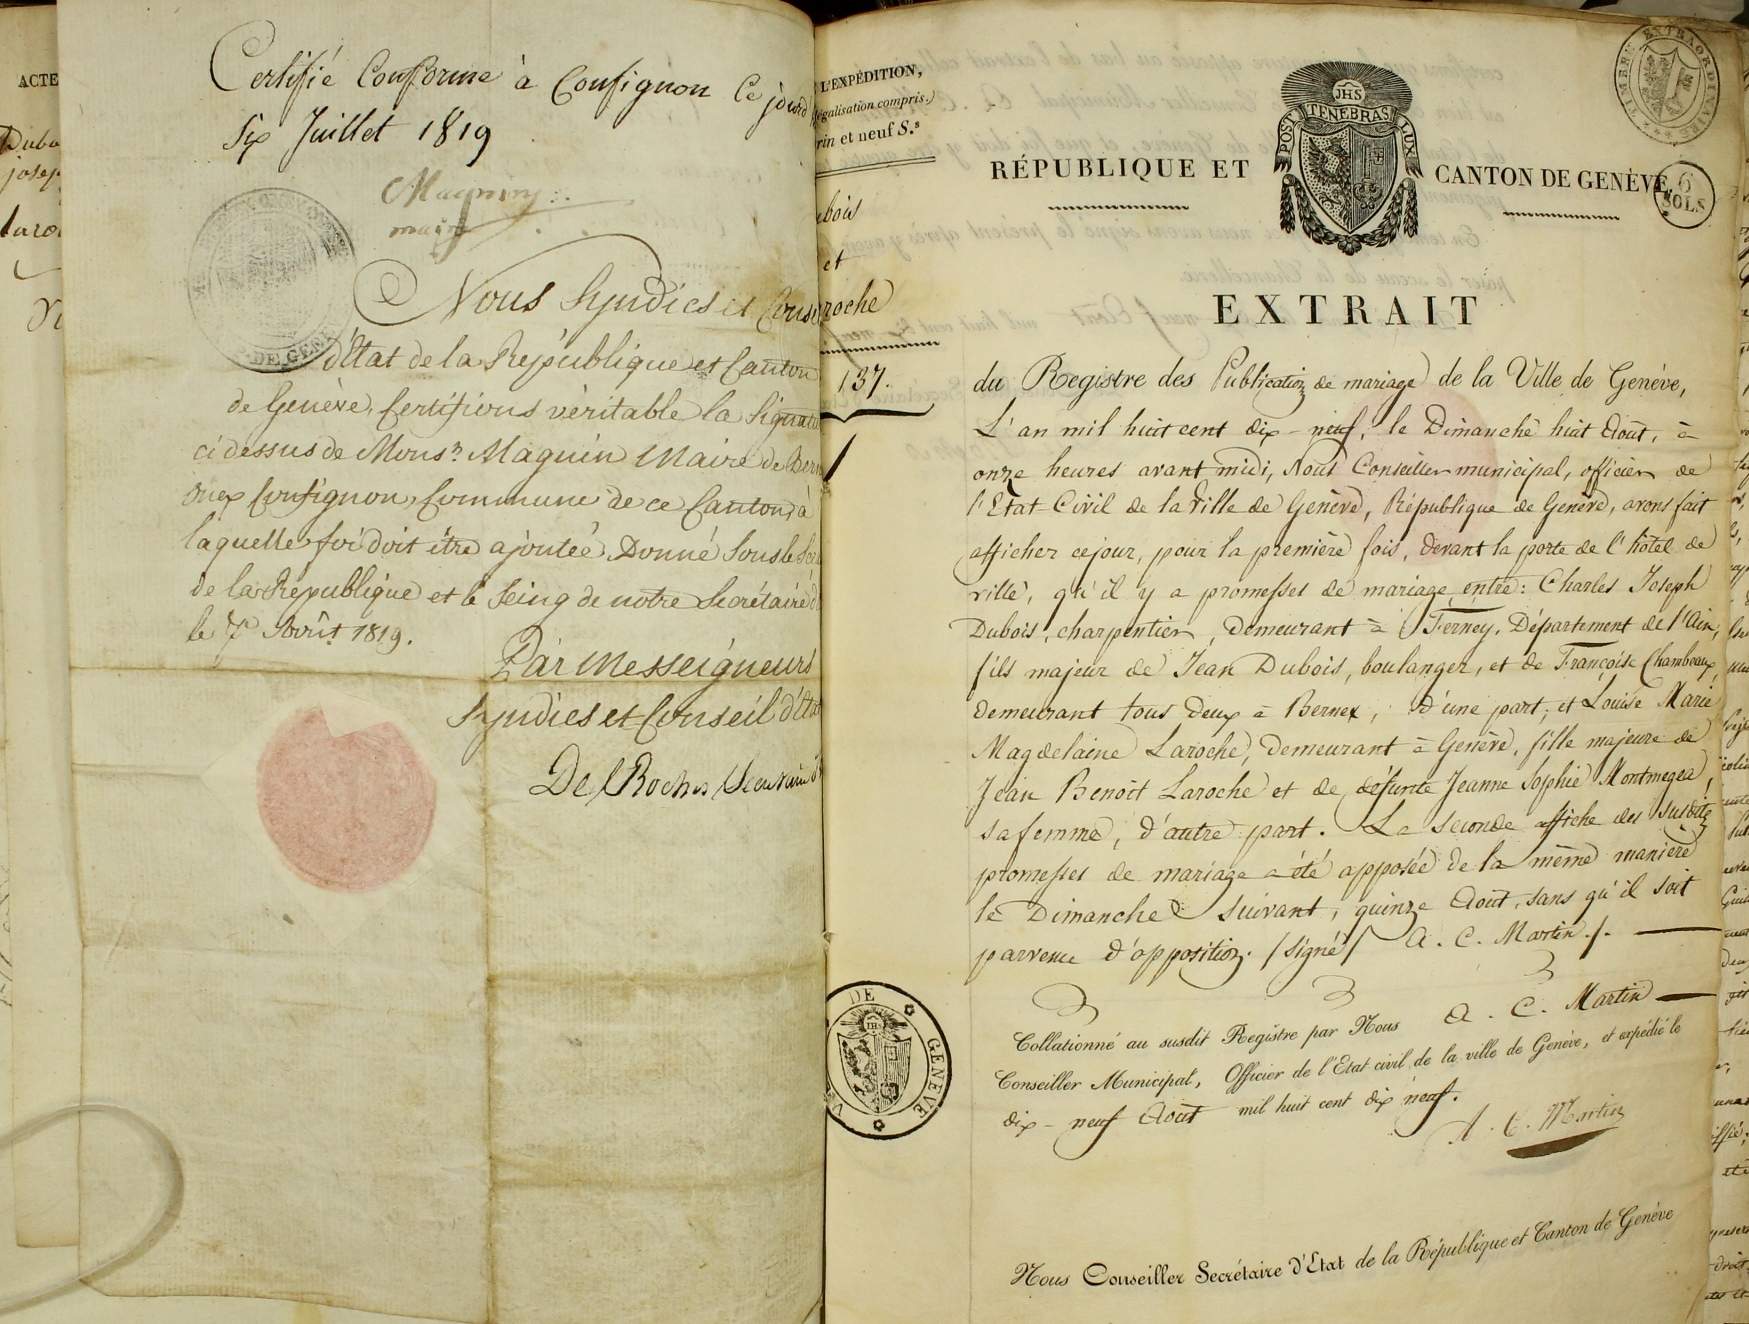 ACTE
Certifié Conforme à Confignon Ce jourd
Six Juillet 1819
Magnin
maire
DE GENE
Nous Syndics et Conse
d'Etat de la République et Canton
de Genève, Certifions véritable la Signatu
ci dessus de Monsr. Magnin Maire de Bern
Onex Confignon, Commune de ce Canton, à
laquelle foi doit être ajoutée, Donné Sous le Sce
de la République et le Seing de notre Secrétaire d
le 7e Août 1819.
Par Messeigneurs
Syndics et Conseil d'Etat
De Roches Secretaire d'
L'EXPÉDITION,
égalisation compris.)
rin et neuf S.s
bois
et
roche
137.
DE GENÈVE
IHS
TIMBRE EXTRAORDINAIRE
6 SOLS
IHS
POST TENEBRAS LUX
RÉPUBLIQUE ET CANTON DE GENÈVE,
EXTRAIT
du Registre des Publication de mariage de la Ville de Genève,
L'an mil huit cent dix-neuf, le Dimanche huit Aout, à
onze heures avant midi, Nous Conseiller municipal, officier de
l'Etat-Civil de la ville de Genève, République de Genève, avons fait
afficher ce jour, pour la première fois, devant la porte de l'hôtel de
ville, qu'il y a promesses de mariage entre: Charles Joseph
Dubois, charpentier, demeurant à Ferney, Département de l'Ain,
fils majeur de Jean Dubois, boulanger, et de Françoise Chambeaux,
demeurant tous deux à Bernex, d'une part; et Louise Marie
Magdelaine Laroche, demeurant à Genève, fille majeure de
Jean Benoit Laroche et de défunte Jeanne Sophie Montmeger,
sa femme, d'autre part. La seconde affiche des susdites
promesses de mariage a été apposée de la même manière
le Dimanche suivant, quinze Aout, sans qu'il soit
parvenu d'opposition. /signé/ A. C. Martin./.
Collationné au susdit Registre par Nous A. C. Martin
Conseiller Municipal, Officier de l'Etat civil de la ville de Genève, et expédié le
dix-neuf Aout mil huit cent dix neuf.
A. C. Martin
Nous Conseiller Secrétaire d'État de la République et Canton de Genève